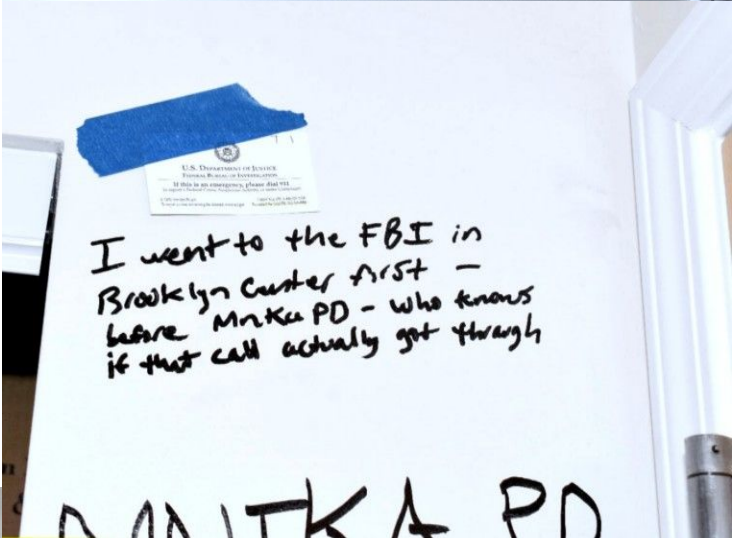 U.S. DEPARTMENT OF JUSTICE
FEDERAL BUREAU OF INVESTIGATION
If this is an emergency, please dial 911
I went to the FBI in
Brooklyn Center first –
before MnKa PD – who knows
if that call actually got through
MNTKA PD